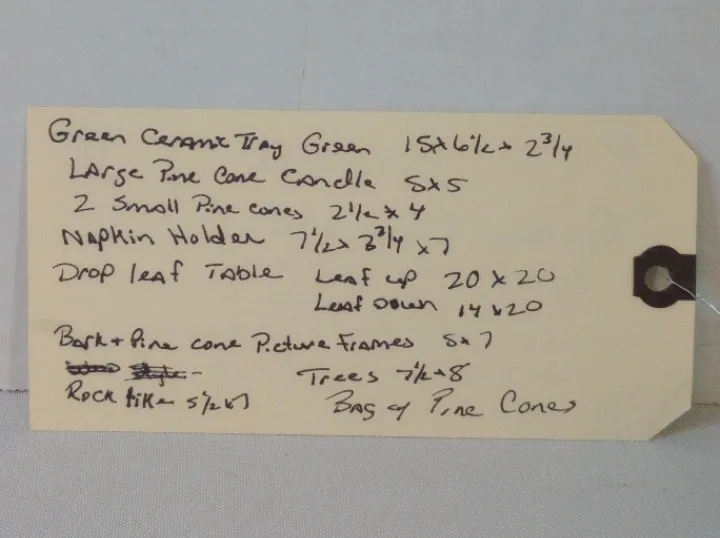 Green Ceramic Tray Green 15x6½x 2¾
Large Pine Cone Candle 5x5
2 Small Pine cones 2½x4
Napkin Holder 7½x 3¾ x7
Drop leaf Table Leaf up 20 x 20
Leaf Down 14x20
Bark + Pine cone Picture Frames 5x7
Trees 7½x8
Rock like 5½x7
Bag of Pine Cones